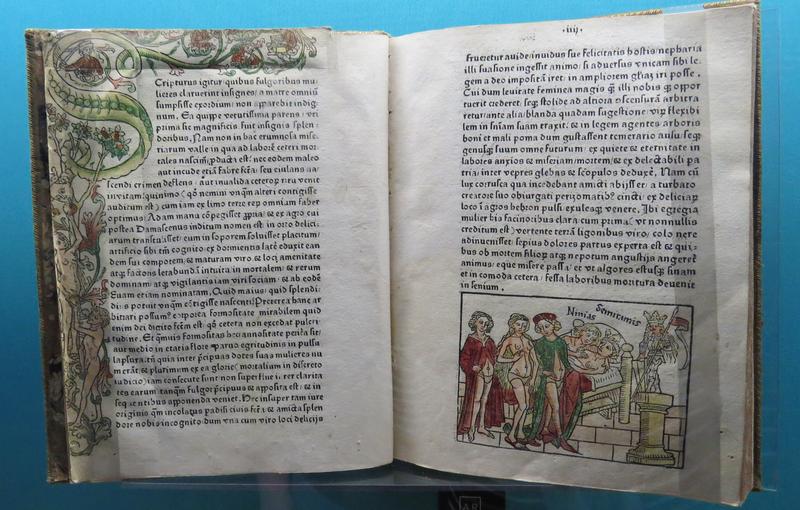 Cripturus igitur quibus fulgoribus mu
lieres claruerint insignes: a matre omniū
sumpsisse exordium: non apparebit indig
num. Ea quippe vetustissima parens: vti
prima sic magnificis fuit insignis splen
doribus. Nam non in hac erumnosa mise
riarum valle in qua ad laborē ceteri mor
tales nascimur
aut incude
scendi crimen deflens: aut inualida ceterorum ritu venit
in vitam:
auditum est) cum iam ex limo terre rerum omnium faber
optimus Adam manu
postea Damascenus inditum nomen est in orto delici
arum transtulisset: eum in soporem soluisset placitum:
artificio sibi tm̄ cognito ex dormientis latē eduxit ean
dem sui compotem, & maturam viro & loci amenitate
atq; factoris letabundā intuitu immortalem & rerum
dominam: atq; vigilantis iam viri sociam: & ab eodē
Euam etiam nominatam. Quid maius: quid splendi
dius potuit vnquā
bitrari possum? corporea formositate mirabilem quid
enim dei digito
tudine. Et
aut medio in etatis flore paruo egritudinis in pulsu
lapsura: tn̄ quia inter precipuas dotes suas mulieres nu
merāt & plurimum ex ea glorie: mortalium in discreto
iudicio: iam consecute sunt non superflue
tates earum tanquam fulgor precipuus & apposita est: & in
sequentibus apponenda veniet. Hec insuper tam iure
originis quam incolatus padisi ciuis & amicta splen
dore nobis incognito dum vna cum viro loci delicijs
.iiij.
frueretur auide: inuidus sue felicitatis hostis nepharia
illi suasione ingessit animo: si aduersus vnicam sibi le
gem a deo impositā iret: in ampliorem gloriā iri posse.
Cui dum leuitate feminea magis quam illi nobisq; opor
tuerit crederet: seq; stolide ad altiora arbitra
retur: ante alia: blanda quadam sugestione: virum flexibi
lem in suam traxit: & in legem agentes arboris
boni et mali poma dum gustassent temerario ausu: seq;
genusq; suum omne futurum: ex quiete & eternitate in
labores anxios & miseriam mortem: & ex delectabili pa
tria: inter vepres glebas & scopulos deduxere. Nam cū
lux corrusca qua incedebant amicti abijsset: a turbato
creatore suo obiurgati cincti: ex deliciarum
loco in agros hebron pulsi exulesq; venere. Ibi egregia
mulier his facinoribus clara cum prima: vt nonnullis
creditum est: vertente terrā ligonibus viro: colo nere
adinuenisset: sepius dolores partus experta est & qui
bus ob mortem filiorum atq; nepotum angustijs angeret
animus: eque misere passa: et vt algores estusq; sinam
et incomoda cetera: fessa laboribus moritura deuenit
in senium.
Ninias Semiramis